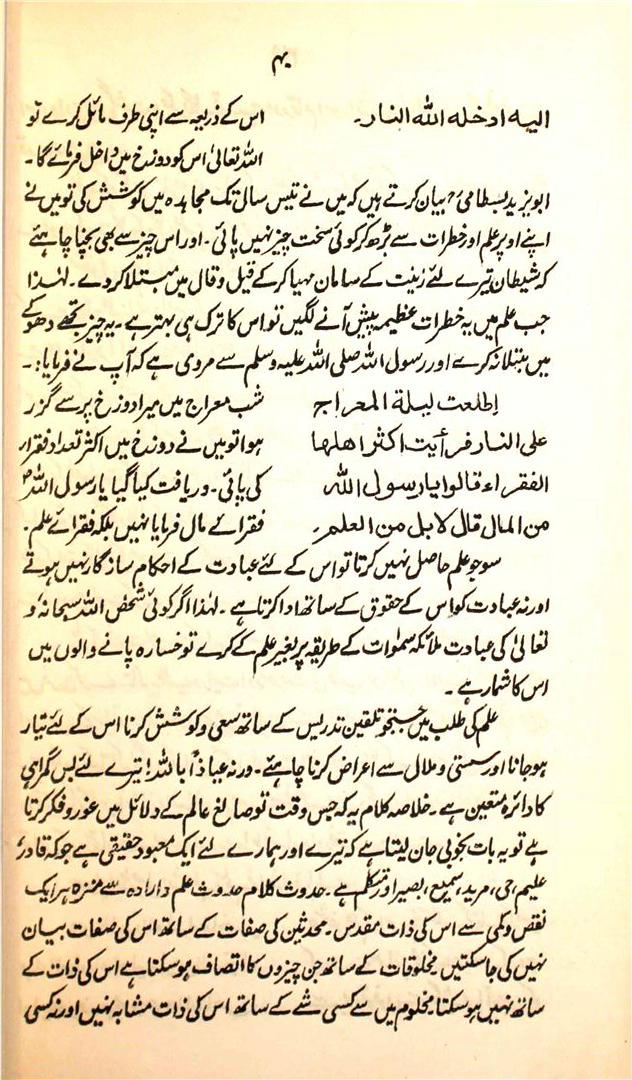 ۴۰
الیه ادخله الله النار۔ اس کے ذریعہ سے اپنی طرف مائل کرے تو
اللہ تعالیٰ اس کو دوزخ میں داخل فرمائے گا۔
ابویزید بسطامیؒ بیان کرتے ہیں کہ میں نے تیس سال تک مجاہدہ میں کوشش کی تو میں نے
اپنے اوپر علم اور خطرات سے بڑھ کر کوئی سخت چیز نہیں پائی۔ اور اس چیز سے بھی بچنا چاہئے
کہ شیطان تیرے لئے زینت کے سامان مہیا کرکے قیل وقال میں مبتلا کردے۔ لہٰذا
جب علم میں یہ خطرات عظیمہ پیش آنے لگیں تو اس کا ترک ہی بہتر ہے۔ یہ چیز تجھے دھوکے
میں مبتلا نہ کرے اور رسول اللہ صلی اللہ علیہ وسلم سے مروی ہے کہ آپ نے فرمایا:۔
إطلعت ليلة المعراج شب معراج میں میرا دوزخ پر سے گزر
على النار فرأيت اكثر اهلها ہوا تو میں نے دوزخ میں اکثر تعداد فقراء
الفقراء قالوا يا رسول الله کی پائی۔ دریافت کیا گیا یا رسول اللہؐ
من المال قال لا بل من العلم۔ فقرائے مال فرمایا نہیں بلکہ فقرائے علم۔
سو جو علم حاصل نہیں کرتا تو اس کے لئے عبادت کے احکام سازگار نہیں ہوتے
اور نہ عبادت کو اس کے حقوق کے ساتھ ادا کرتا ہے۔ لہٰذا اگر کوئی شخص اللہ سبحانہٗ و
تعالیٰ کی عبادت ملائکہ سمٰوات کے طریقہ پر بغیر علم کے کرے تو خسارہ پانے والوں میں
اس کا شمار ہے۔
علم کی طلب میں جستجو تلقین تدریس کے ساتھ سعی وکوشش کرنا اس کے لئے تیار
ہوجانا اور سستی وملال سے اعراض کرنا چاہئے۔ ورنہ عیاذًا باللہ! تیرے لئے بس گمراہی
کا دائرہ متعین ہے۔ خلاصہ کلام یہ کہ جس وقت تو صانع عالم کے دلائل میں غور وفکر کرتا
ہے تو یہ بات بخوبی جان لیتا ہے کہ تیرے اور ہمارے لئے ایک معبود حقیقی ہے جو کہ قادر،
علیم، حی، مرید، سمیع، بصیر اور متکلم ہے۔ حدوث کلام حدوث علم وارادہ سے منزہ ہر ایک
نقص وکمی سے اس کی ذات مقدس۔ محدثین کی صفات کے ساتھ اس کی صفات بیان
نہیں کی جاسکتیں۔ مخلوقات کے ساتھ جن چیزوں کا اتصاف ہوسکتا ہے اس کی ذات کے
ساتھ نہیں ہوسکتا۔ مخلوم میں سے کسی شے کے ساتھ اس کی ذات مشابہ نہیں اور نہ کسی